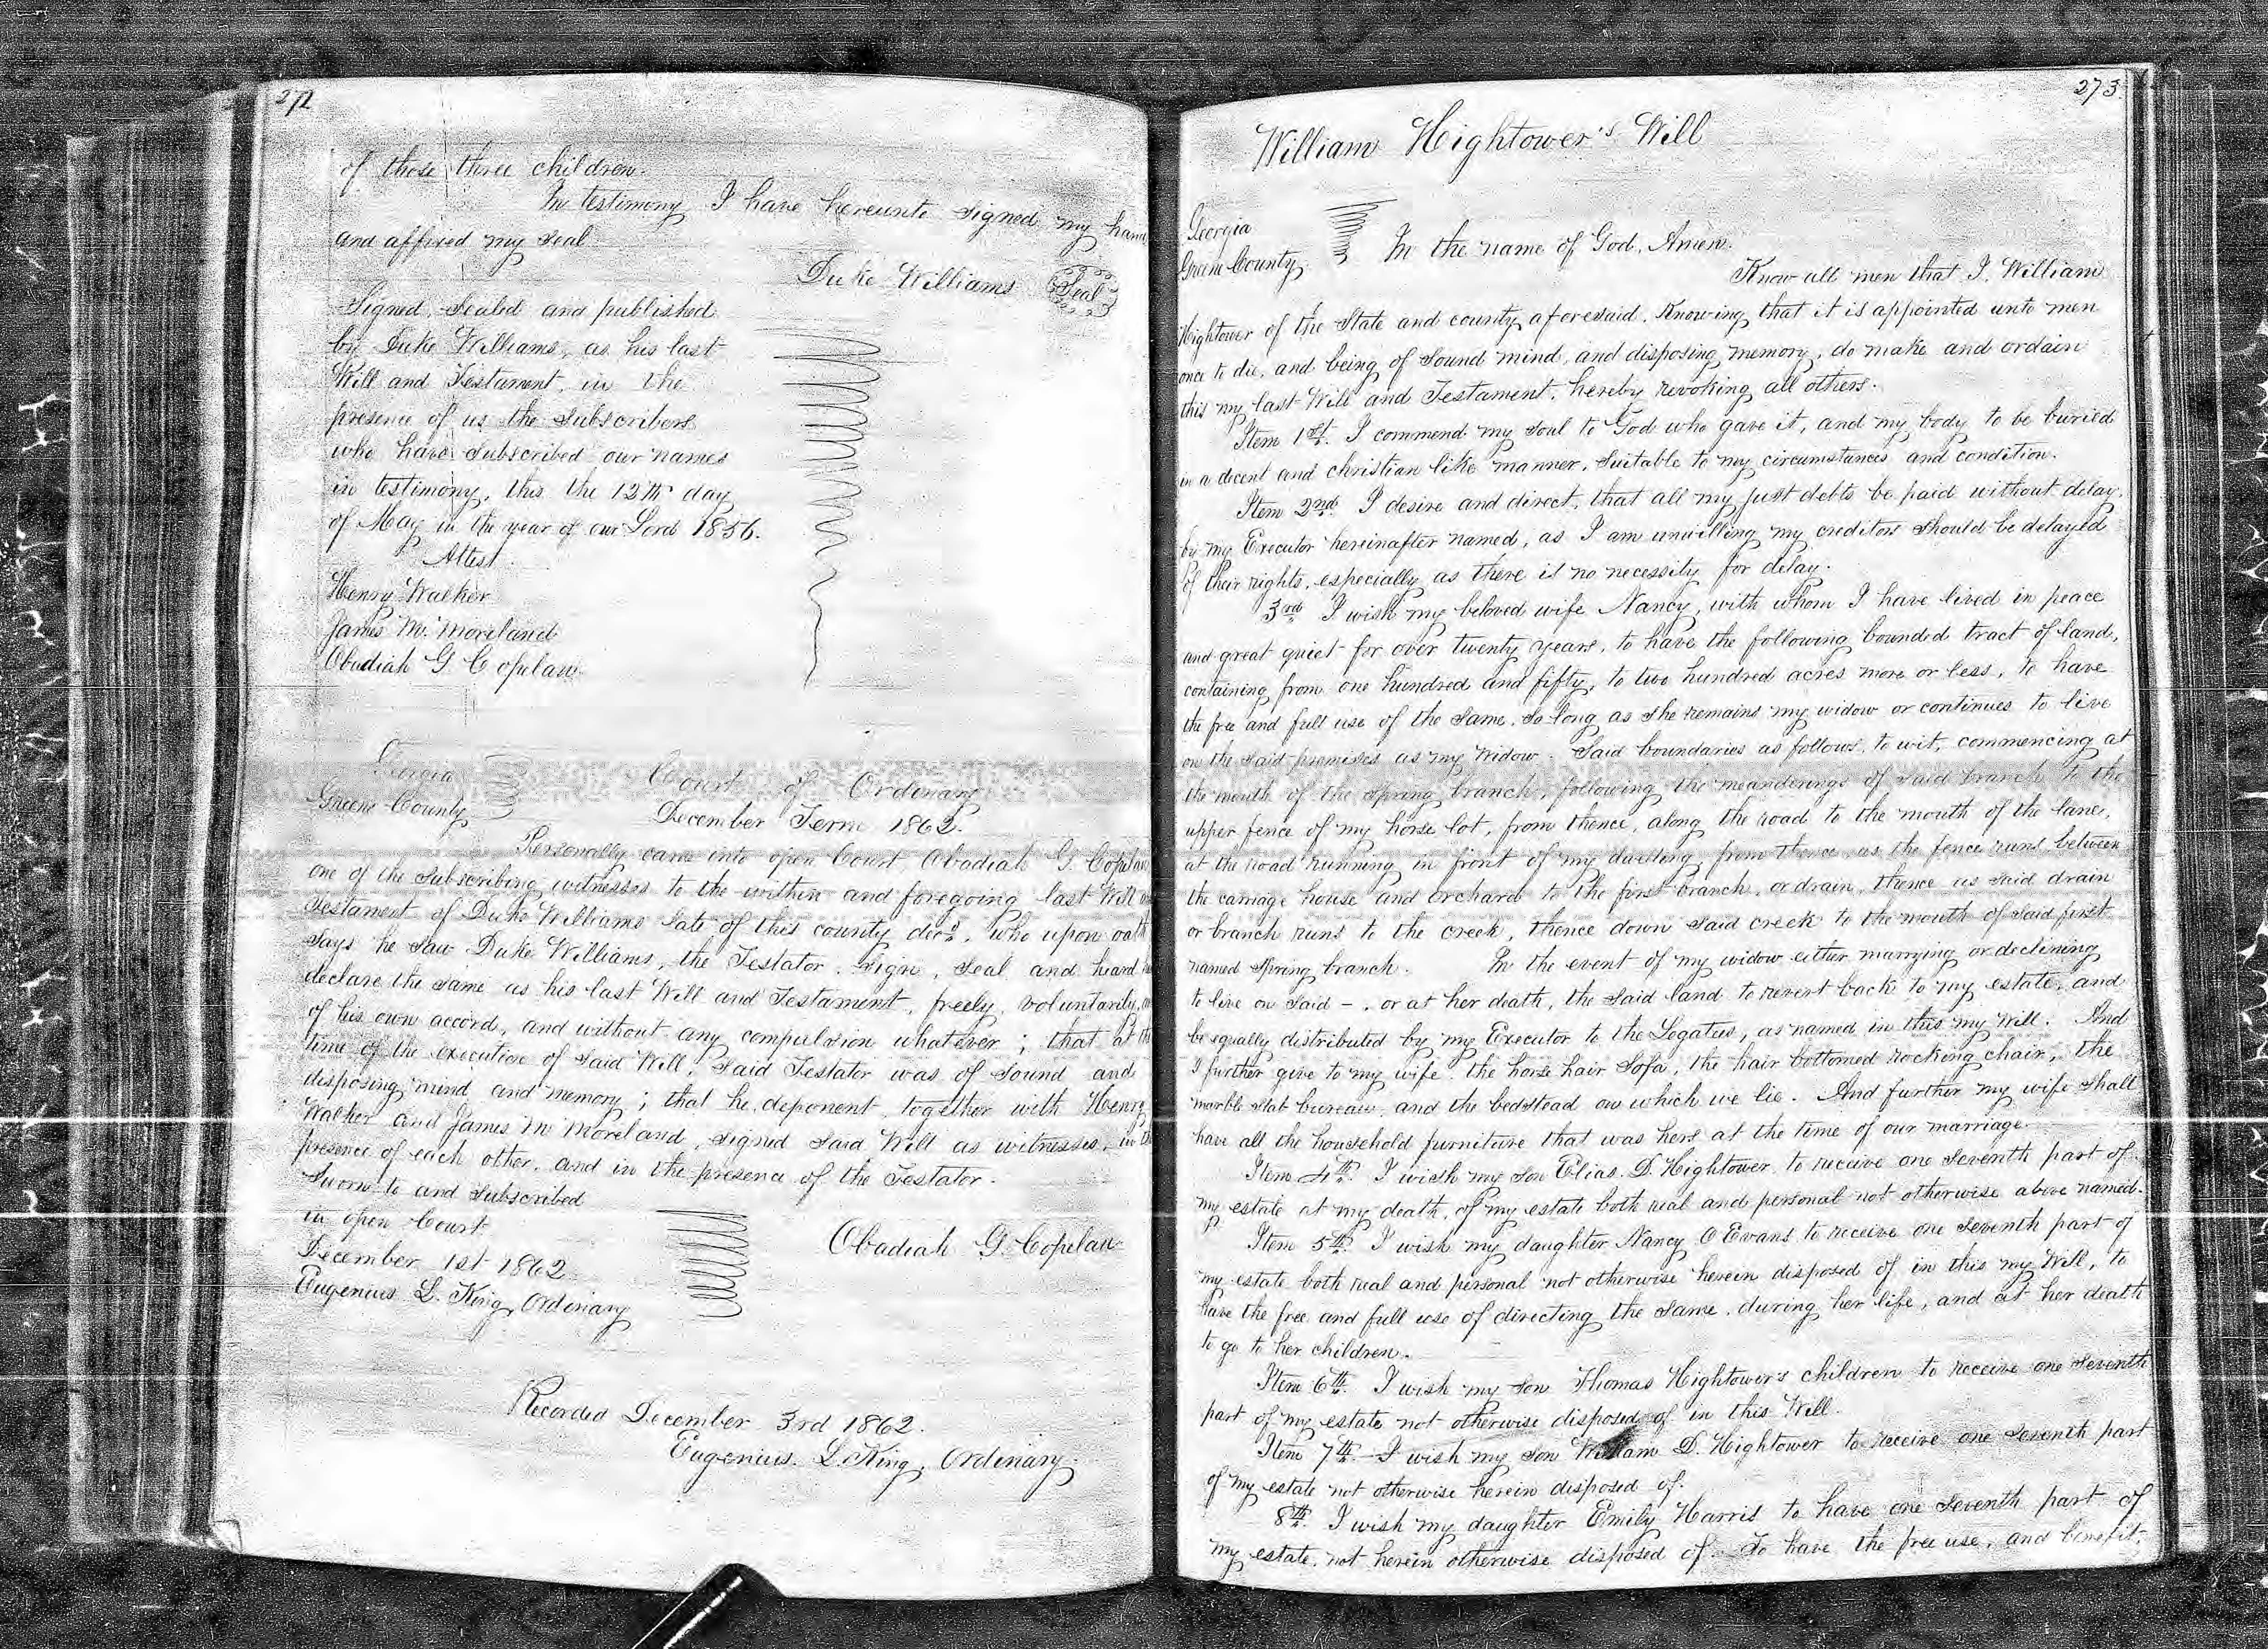 272
of those three children.
In testimony I have hereunto signed my hand
and affixed my seal
Duke Williams Seal
Signed, Sealed and published
by Duke Williams, as his last
Will and Testament, in the
presence of us the Subscribers
who have subscribed our names
in testimony, this the 12th day
of May in the year of our Lord 1856.
Attest
Henry Walker
James M. Moreland
Obadiah G Copelan
Georgia
Greene County
Court of Ordinary
December Term 1862.
Personally came into open Court Obadiah G. Copelan
one of the subscribing witnesses to the within and foregoing last Will
Testament of Duke Williams late of this county decd, who upon oath
says he saw Duke Williams, the Testator, sign, seal and heard
declare the same as his last Will and Testament, freely, voluntarily,
of his own accord, and without any compulsion whatever; that at the
time of the execution of said Will, said Testator was of sound and
disposing mind and memory; that he, deponent, together with Henry
Walker and James M Moreland, signed said Will as witnesses, in the
presence of each other, and in the presence of the Testator.
Sworn to and subscribed
in open Court
December 1st 1862
Eugenius L. King, Ordinary
Obadiah G. Copelan
Recorded December 3rd 1862.
Eugenius L. King, Ordinary.
273
William Hightower's Will
Georgia
Green County
In the name of God, Amen.
Know all men that I, William
Hightower of the State and county aforesaid, Knowing that it is appointed unto men
once to die, and being of sound mind, and disposing memory, do make and ordain
this my last Will and Testament, hereby revoking all others.
Item 1st. I commend my soul to God who gave it, and my body to be buried
in a decent and christian like manner, suitable to my circumstances and condition.
Item 2nd. I desire and direct, that all my just debts be paid without delay,
by my Executor hereinafter named, as I am unwilling my creditors should be delayed
of their rights, especially as there is no necessity for delay.
3rd I wish my beloved wife Nancy, with whom I have lived in peace
and great quiet for over twenty years, to have the following bounded tract of land,
containing from one hundred and fifty, to two hundred acres more or less, to have
the free and full use of the same, so long as she remains my widow or continues to live
on the said premises as my widow. Said boundaries as follows, to wit, commencing at
the mouth of the spring branch, following the meanderings of said branch to the
upper fence of my horse lot, from thence, along the road to the mouth of the lane,
at the road running in front of my dwelling, from thence, as the fence runs between
the carriage house and orchard to the first branch, or drain, thence as said drain
or branch runs to the creek, thence down said creek to the mouth of said first
named spring branch. In the event of my widow either marrying or declining
to live on said - , or at her death, the said land to revert back to my estate, and
be equally distributed by my Executor to the Legatees, as named in this my Will. And
I further give to my wife, the horse hair Sofa, the hair bottomed rocking chair, the
marble slab bureau, and the bedstead on which we lie. And further my wife shall
have all the household furniture that was hers at the time of our marriage.
Item 4th. I wish my son Elias D. Hightower, to receive one seventh part of
my estate at my death, of my estate both real and personal not otherwise above named.
Item 5th. I wish my daughter Nancy O Evans to receive one seventh part of
my estate both real and personal not otherwise herein disposed of in this my Will, to
have the free and full use of directing the same, during her life, and at her death
to go to her children.
Item 6th. I wish my son Thomas Hightower's children to receive one seventh
part of my estate not otherwise disposed of in this Will.
Item 7th. I wish my son William D. Hightower to receive one seventh part
of my estate not otherwise herein disposed of.
8th. I wish my daughter Emily Harris to have one seventh part of
my estate, not herein otherwise disposed of. To have the free use, and benefit,